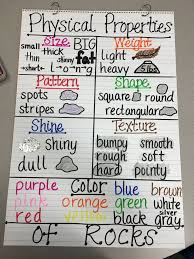 Physical Properties
Size
small BIG
thick thin skinny fat
→short← L-o-n-g
Weight
light
heavy
Pattern
spots
stripes
Shape
square round
rectangular
Shine
shiny
dull
Texture
bumpy smooth
rough soft
hard pointy
Color
purple blue brown
pink orange green white
silver
red yellow black gray
Of Rocks